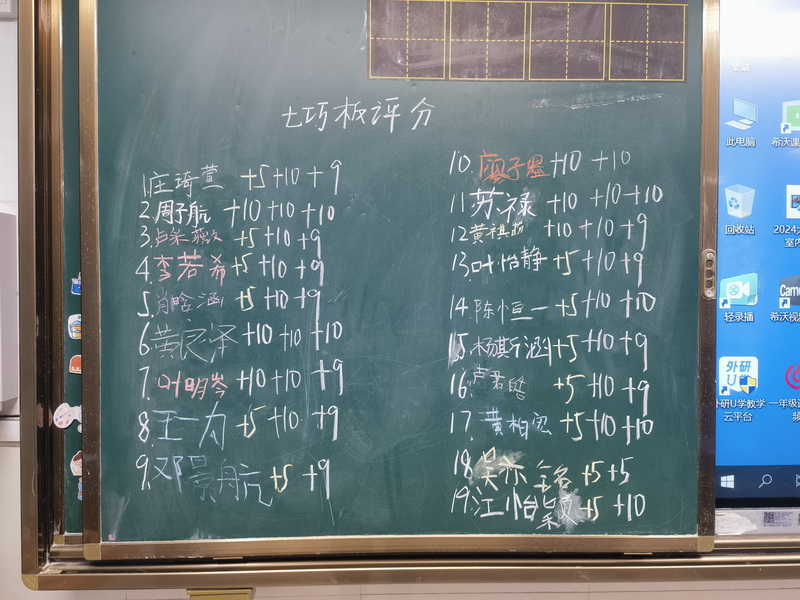 七巧板评分
1.庄琦萱 +5 +10 +9
2.周子航 +10 +10 +10
3. +5 +10 +9
4.李若希 +5 +10 +9
5.肖晗涵 +5 +10 +9
6.黄良泽 +10 +10 +10
7.叶明岑 +10 +10 +9
8.王一力 +5 +10 +9
9.邓景航 +5 +9
10.廖子煜 +10 +10
11.苏禄 +10 +10 +10
12黄祺扬 +10 +10 +9
13叶怡静 +5 +10 +9
14.陈恒一 +5 +10 +10
15.杨斯涵 +5 +10 +9
16.卢君皓 +5 +10 +9
17.黄柏宽 +5 +10 +10
18.吴亦铭 +5 +5
19.江怡颖 +5 +10
此电脑
希沃课
回收站
2024
室内
轻录播
希沃视
外研U学教学
云平台
一年级